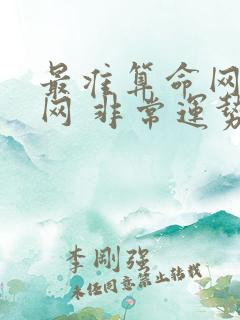 最准算命网
网 非常运势
李刚强
未经同意禁止转载